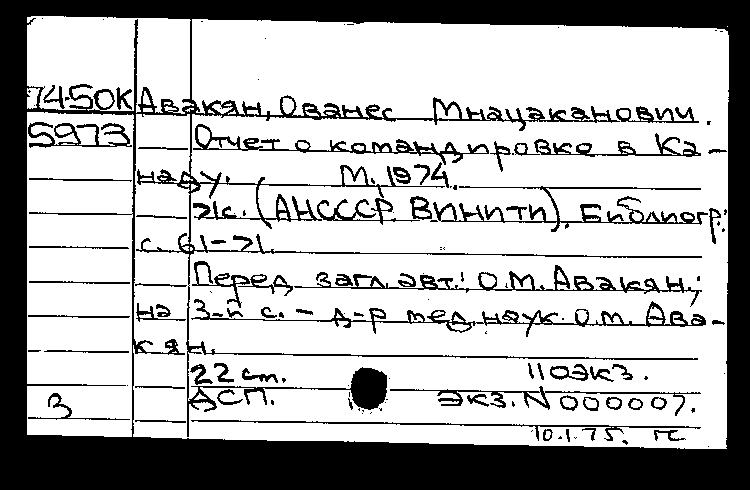 74-50К Авакян, Ованес Мнацаканович.
5973 Отчет о командировке в Ка-
наду. М., 1974.
71с. (АНСССР. ВИНИТИ). Библиогр.:
с. 61-71.
Перед загл. авт.: О.М. Авакян.;
на 3-й с. - д-р мед. наук. О.М. Ава-
кян.
22 ст. 110экз.
В ДСП. Экз. N 000007.
10.1.75. гс